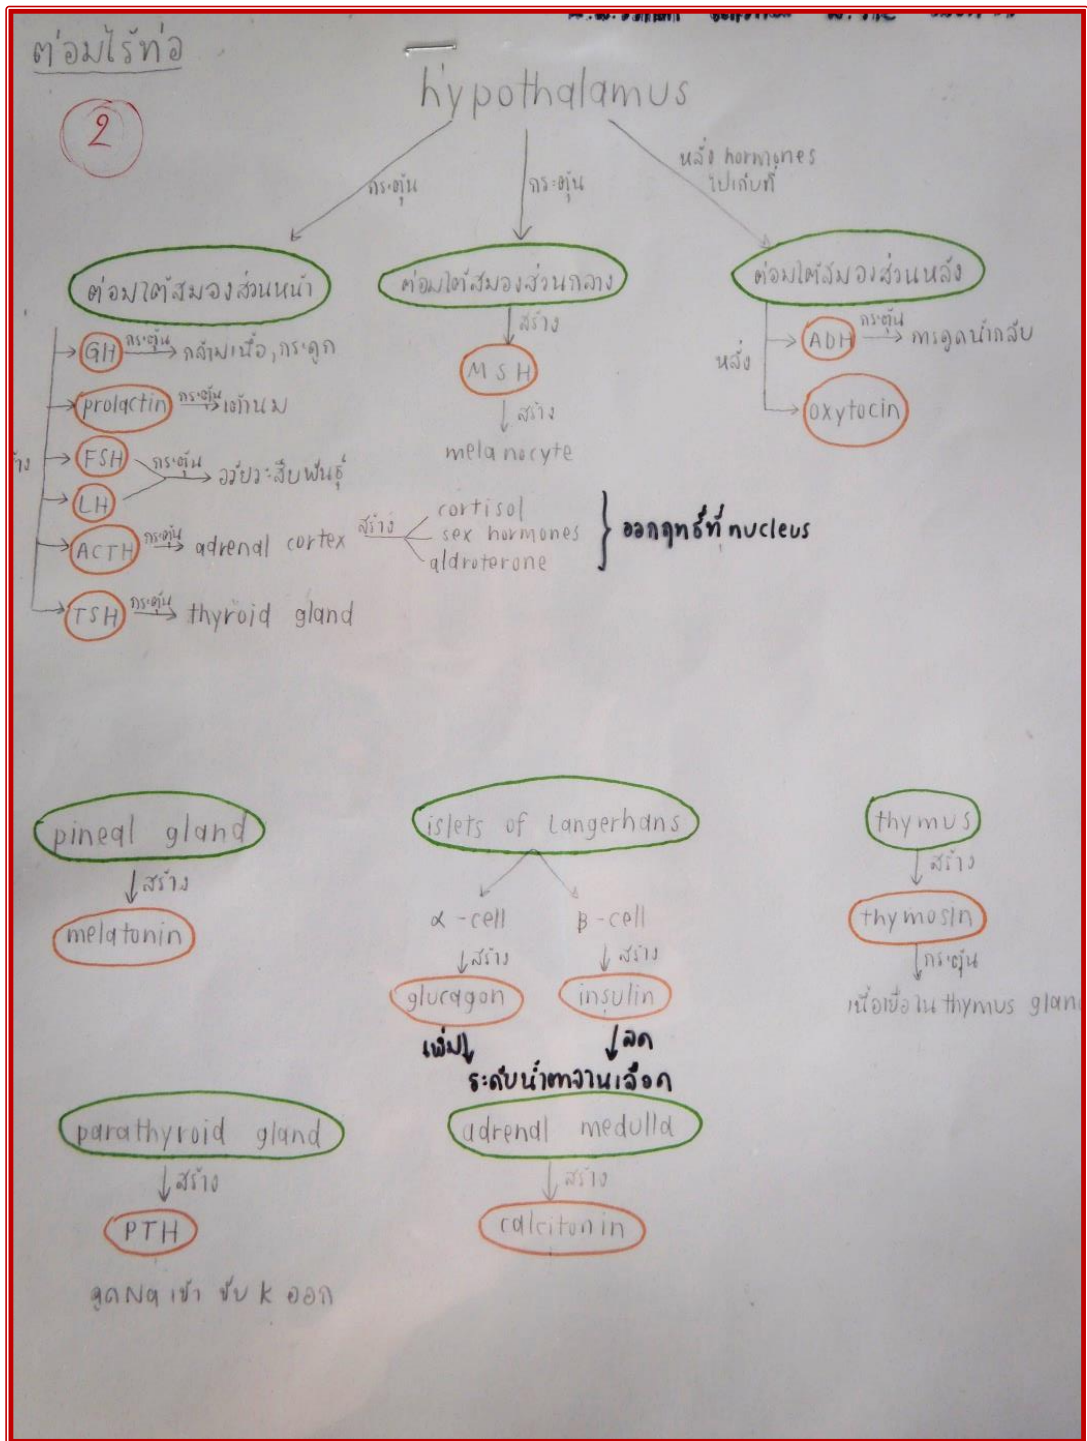 ต่อมไร้ท่อ
2
hypothalamus
กระตุ้น
กระตุ้น
หลั่ง hormones
ไปเก็บที่
ต่อมใต้สมองส่วนหน้า
ต่อมใต้สมองส่วนกลาง
ต่อมใต้สมองส่วนหลัง
GH กระตุ้น กล้ามเนื้อ, กระดูก
prolactin กระตุ้น เต้านม
FSH
LH
กระตุ้น อวัยวะสืบพันธุ์
ACTH กระตุ้น adrenal cortex สร้าง
cortisol
sex hormones
aldroterone
ออกฤทธิ์ที่ nucleus
TSH กระตุ้น thyroid gland
สร้าง
MSH
สร้าง
melanocyte
หลั่ง
ADH กระตุ้น การดูดน้ำกลับ
oxytocin
pineal gland
สร้าง
melatonin
islets of Langerhans
α-cell β-cell
สร้าง สร้าง
glucagon insulin
เพิ่ม ลด
ระดับน้ำตาลในเลือด
thymus
สร้าง
thymosin
กระตุ้น
เนื้อเยื่อใน thymus glan
parathyroid gland
สร้าง
PTH
ดูด Na เข้า ขับ K ออก
adrenal medulla
สร้าง
calcitonin